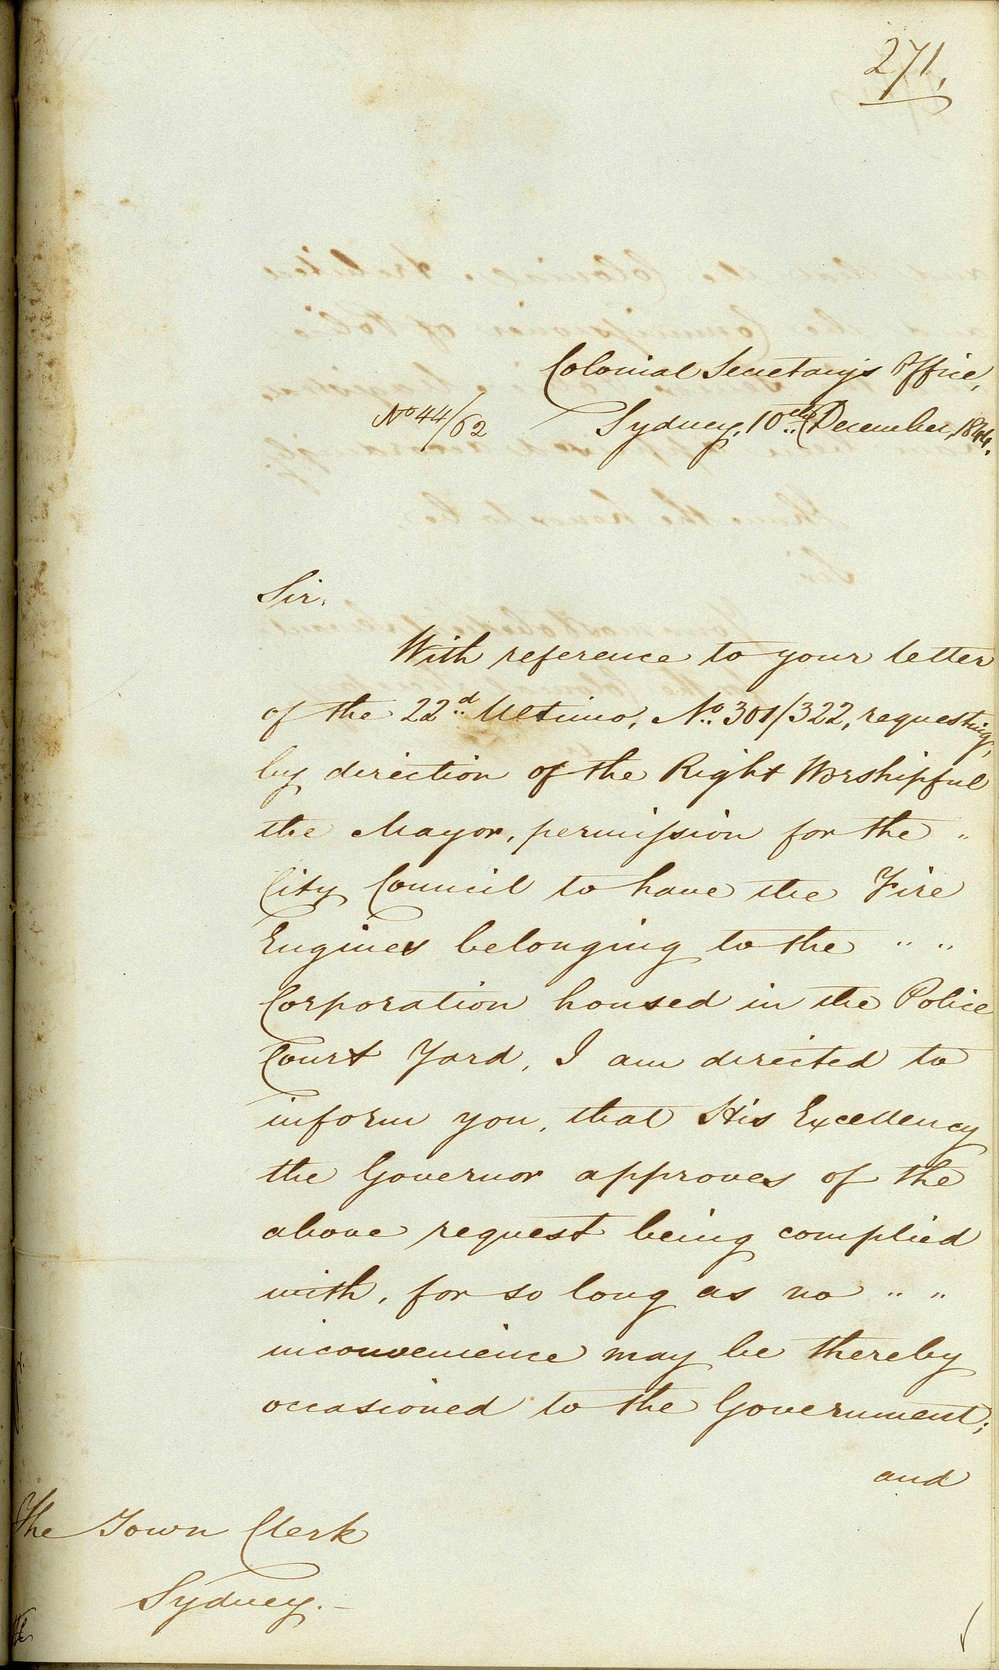 271,
Colonial Secretary's Office,
No 44/62 Sydney, 10th December, 1844.
Sir,
With reference to your letter
of the 22d Ultimo, No. 301/322, requesting,
by direction of the Right Worshipful
the Mayor, permission for the "
City Council to have the Fire
Engines belonging to the " "
Corporation housed in the Police
Court Yard, I am directed to
inform you, that His Excellency
the Governor approves of the
above request being complied
with, for so long as no " "
inconvenience may be thereby
occasioned to the Government;
and
The Town Clerk
Sydney.-